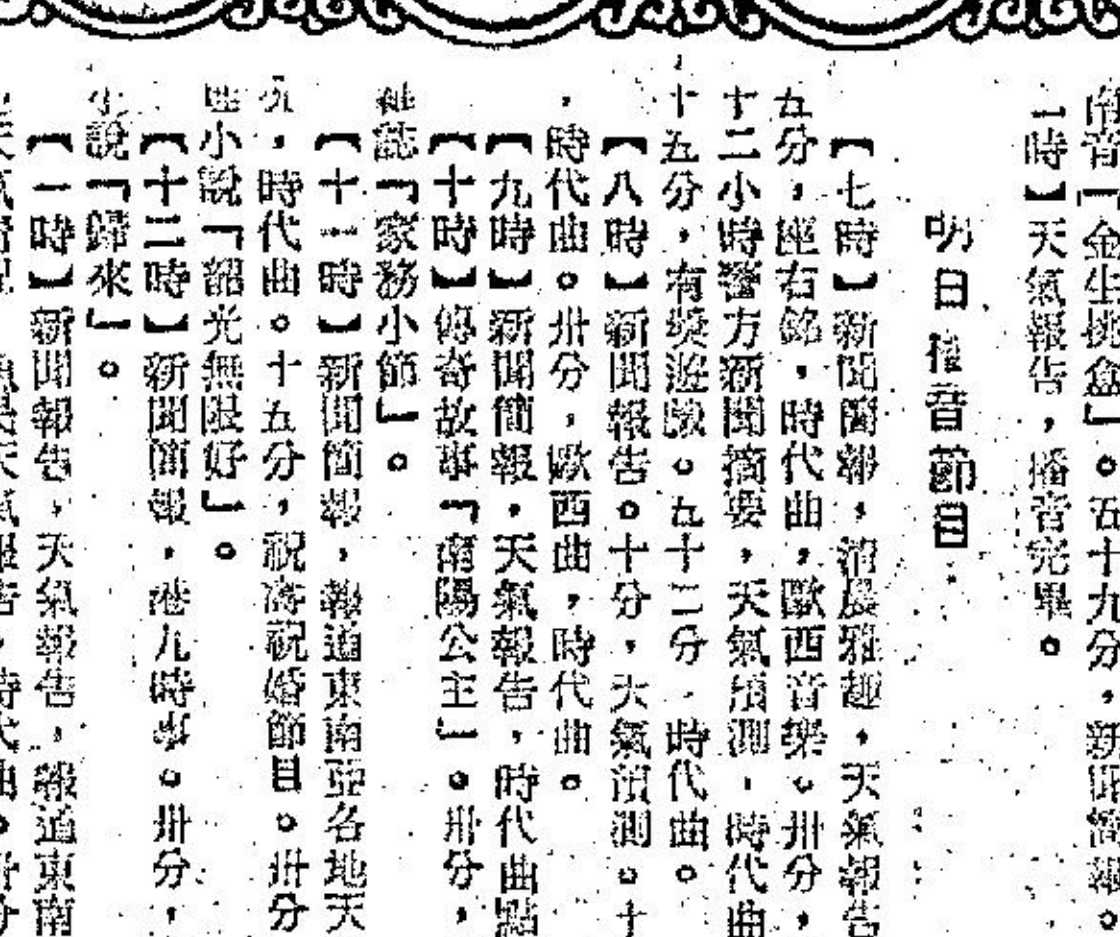 南音「金生挑盒」。五十九分，新聞簡報。
一時】天氣報告，播音完畢。
明日播音節目
【七時】新聞簡報，清晨雅趣，天氣報告
五分，座右銘，時代曲，歐西音樂。卅分，
十二小時警方新聞摘要，天氣預測，時代曲
十五分，有獎遊戲。五十二分，時代曲。
【八時】新聞報告。十分，天氣預測。十
，時代曲。卅分，歐西曲，時代曲。
【九時】新聞簡報，天氣報告，時代曲點
【十時】傳奇故事「南陽公主」。卅分，
誌「家務小節」。
【十一時】新聞簡報，報道東南亞各地天
，時代曲。十五分，祝壽祝婚節目。卅分
小說「韶光無限好」。
【十二時】新聞簡報，港九時事。卅分，
小說「歸來」。
【一時】新聞報告，天氣報告，報道東南
天氣報告，時代曲。卅分